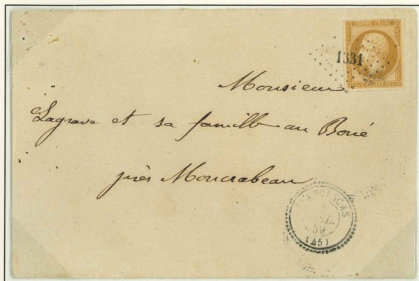 EMPIRE FRANC
1331
Monsieur
Lagrave et sa famille au Boué
près Moncrabeau
(45)